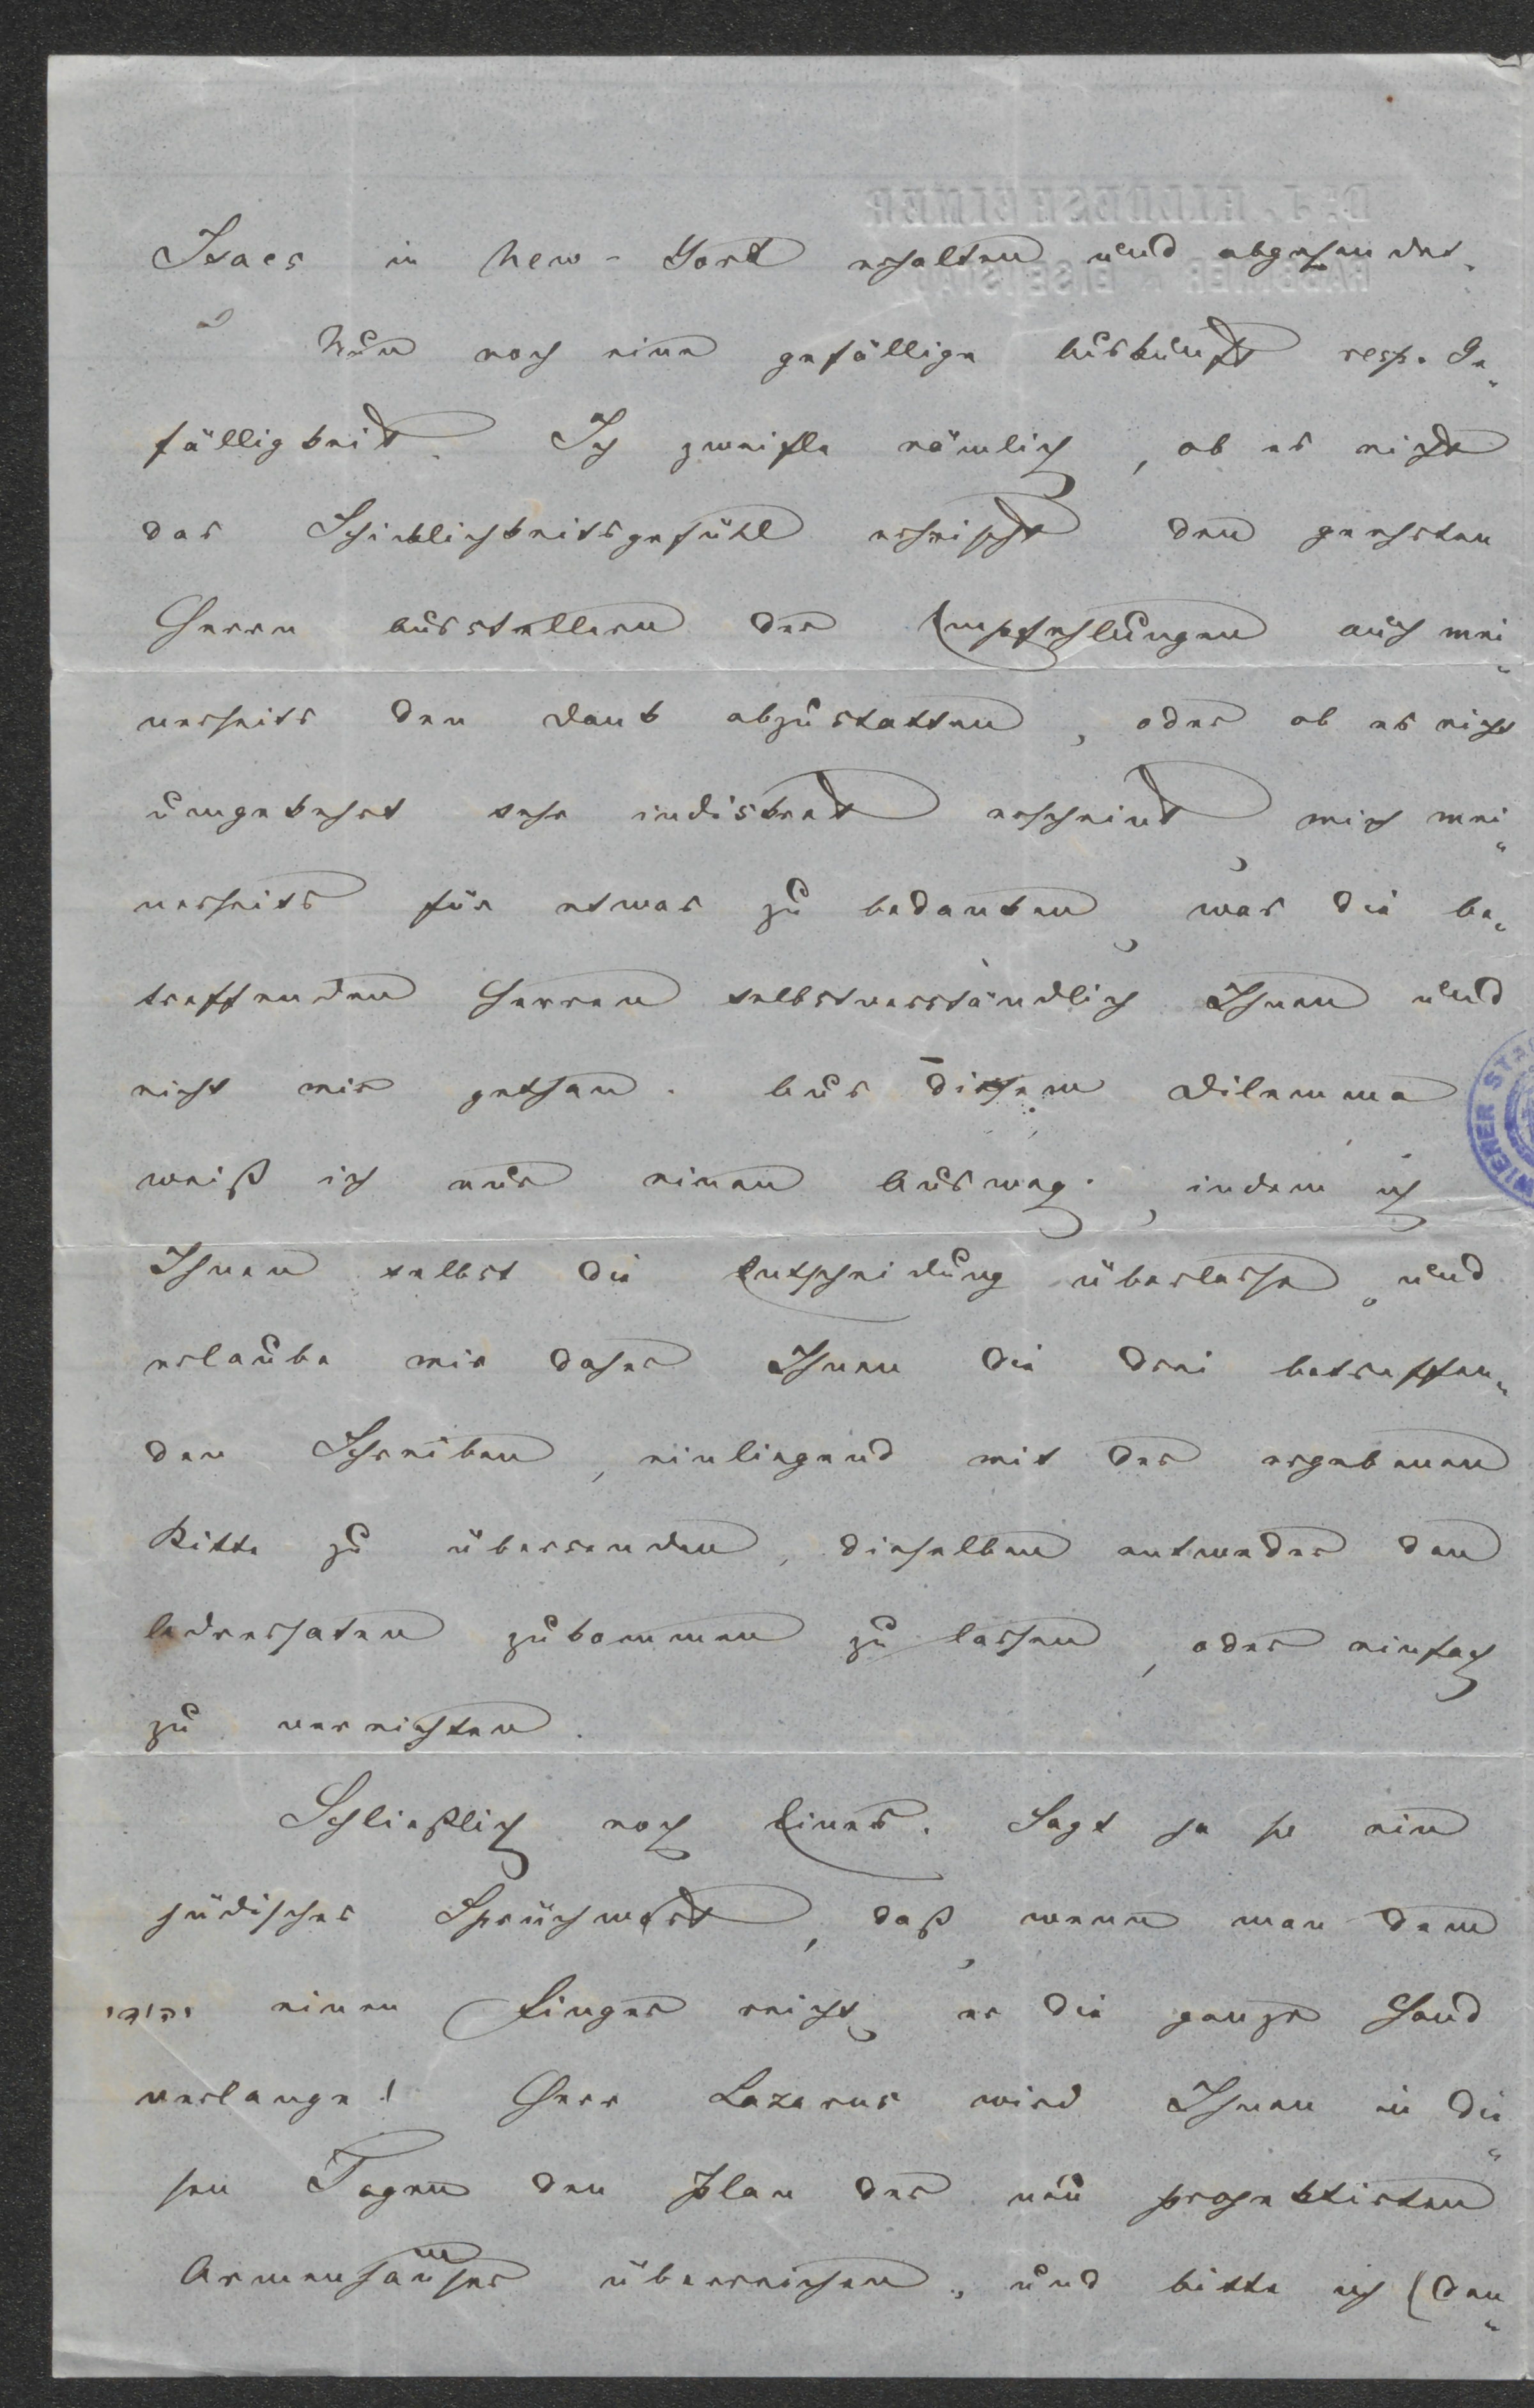 Isaacs in New-York erhalten und abgesendet.
Nun noch eine gefällige Auskunft resp. Ge-
fälligkeit. Ich zweifle nämlich, ob es nicht
das Schicklichkeitsgefühl erheischt den geehrten
Herrn Ausstellern der Empfehlungen auch mei-
nerseits den Dank abzustatten, oder ob es nicht
umgekehrt sehr indiskret erscheint, mich mei-
nerseits für etwas zu bedanken, was die be-
treffenden Herren selbstverständlich Ihnen und
nicht mir gethan. Aus diesem Dilemma
weiß ich nur einen Ausweg, indem ich
Ihnen selbst die Entscheidung überlasse, und
erlaube mir daher Ihnen die drei betreffen-
den Schreiben, einliegend mit der ergebenen
Bitte zu übersenden, dieselben entweder den
Adressaten zukommen zu lassen, oder einfach
zu vernichten.
Schließlich noch Eines. Sagt ja so ein
jüdisches Sprüchwort, daß, wenn man dem
einen Finger reicht, er die ganze Hand
verlange! Herr Lazarus wird Ihnen in die-
sen Tagen den Plan der neu projektirten
Armenhäuser überreichen, und bitte ich (den-
Dr. J. HILDESHEIMER
RABBINER EISENSTADT
WIENER